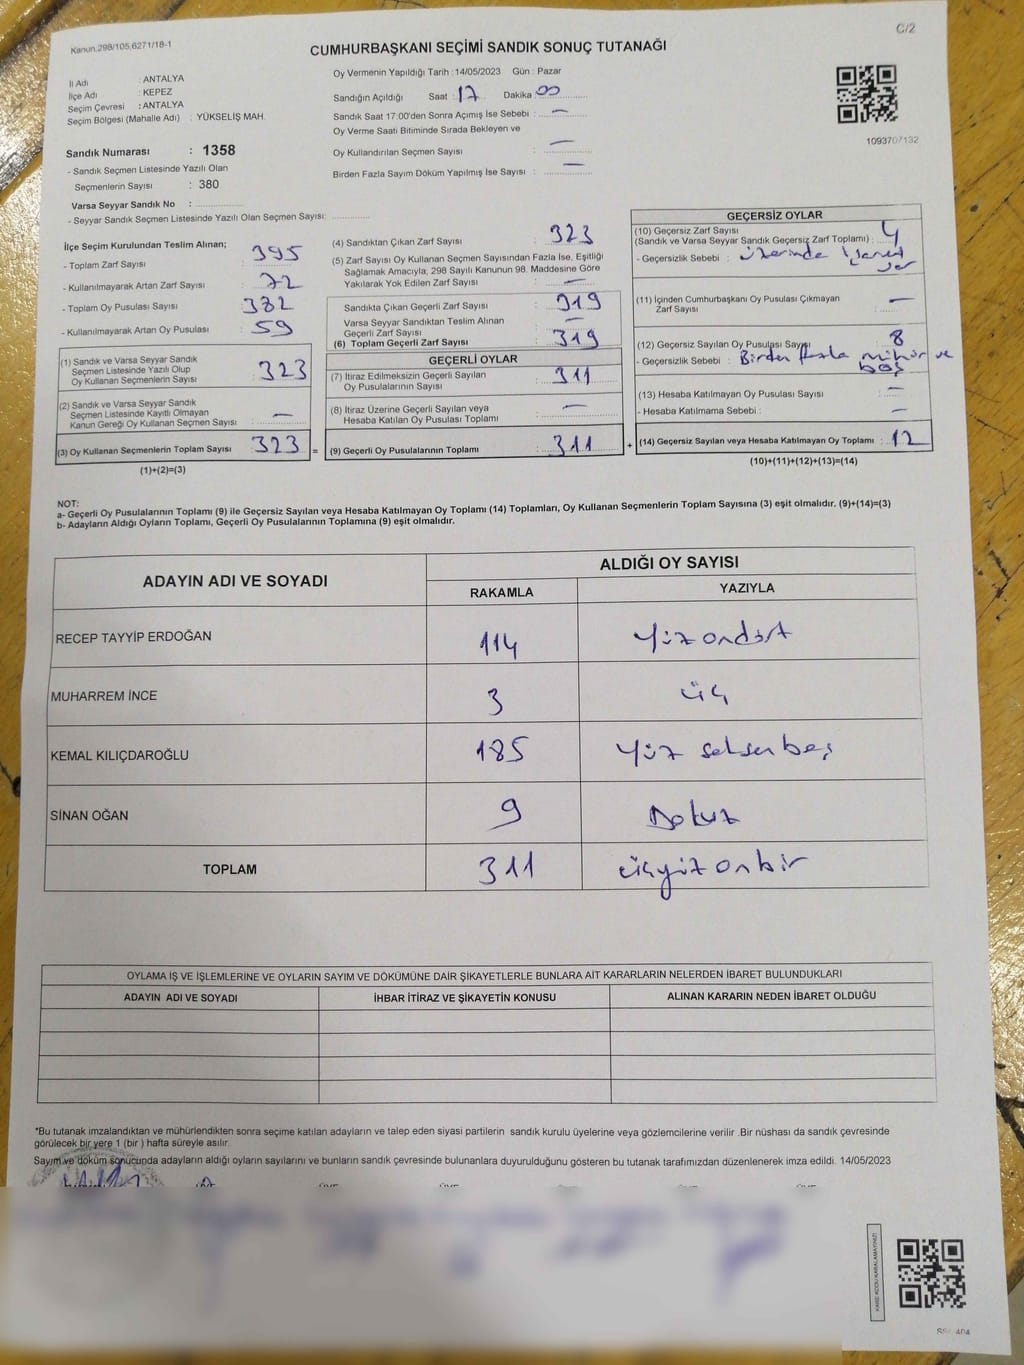 Kanun.298/105,6271/18-1
C/2
CUMHURBAŞKANI SEÇİMİ SANDIK SONUÇ TUTANAĞI
İl Adı : ANTALYA
İlçe Adı : KEPEZ
Seçim Çevresi : ANTALYA
Seçim Bölgesi (Mahalle Adı) : YÜKSELİŞ MAH.
Sandık Numarası : 1358
- Sandık Seçmen Listesinde Yazılı Olan
Seçmenlerin Sayısı : 380
Varsa Seyyar Sandık No :
- Seyyar Sandık Seçmen Listesinde Yazılı Olan Seçmen Sayısı:
Oy Vermenin Yapıldığı Tarih : 14/05/2023 Gün : Pazar
Sandığın Açıldığı Saat : 17 Dakika : 00
Sandık Saat 17:00'den Sonra Açımış İse Sebebi : —
Oy Verme Saati Bitiminde Sırada Bekleyen ve
Oy Kullandırılan Seçmen Sayısı : —
Birden Fazla Sayım Döküm Yapılmış İse Sayısı : —
1093707132
İlçe Seçim Kurulundan Teslim Alınan;
- Toplam Zarf Sayısı : 395
- Kullanılmayarak Artan Zarf Sayısı : 72
- Toplam Oy Pusulası Sayısı : 382
- Kullanılmayarak Artan Oy Pusulası : 59
(1) Sandık ve Varsa Seyyar Sandık
Seçmen Listesinde Yazılı Olup
Oy Kullanan Seçmenlerin Sayısı : 323
(2) Sandık ve Varsa Seyyar Sandık
Seçmen Listesinde Kayıtlı Olmayan
Kanun Gereği Oy Kullanan Seçmen Sayısı : —
(3) Oy Kullanan Seçmenlerin Toplam Sayısı : 323 =
(1)+(2)=(3)
(4) Sandıktan Çıkan Zarf Sayısı : 323
(5) Zarf Sayısı Oy Kullanan Seçmen Sayısından Fazla İse, Eşitliği
Sağlamak Amacıyla; 298 Sayılı Kanunun 98. Maddesine Göre
Yakılarak Yok Edilen Zarf Sayısı : —
Sandıkta Çıkan Geçerli Zarf Sayısı : 319
Varsa Seyyar Sandıktan Teslim Alınan
Geçerli Zarf Sayısı : —
(6) Toplam Geçerli Zarf Sayısı : 319
GEÇERLİ OYLAR
(7) İtiraz Edilmeksizin Geçerli Sayılan
Oy Pusulalarının Sayısı : 311
(8) İtiraz Üzerine Geçerli Sayılan veya
Hesaba Katılan Oy Pusulası Toplamı : —
(9) Geçerli Oy Pusulalarının Toplamı : 311 +
GEÇERSİZ OYLAR
(10) Geçersiz Zarf Sayısı
(Sandık ve Varsa Seyyar Sandık Geçersiz Zarf Toplamı) : 4
- Geçersizlik Sebebi : Üzerinde işaret
var
(11) İçinden Cumhurbaşkanı Oy Pusulası Çıkmayan
Zarf Sayısı : —
(12) Geçersiz Sayılan Oy Pusulası Sayısı : 8
- Geçersizlik Sebebi : Birden fazla mühür ve
boş
(13) Hesaba Katılmayan Oy Pusulası Sayısı : —
- Hesaba Katılmama Sebebi : —
(14) Geçersiz Sayılan veya Hesaba Katılmayan Oy Toplamı : 12
(10)+(11)+(12)+(13)=(14)
NOT:
a- Geçerli Oy Pusulalarının Toplamı (9) ile Geçersiz Sayılan veya Hesaba Katılmayan Oy Toplamı (14) Toplamları, Oy Kullanan Seçmenlerin Toplam Sayısına (3) eşit olmalıdır. (9)+(14)=(3)
b- Adayların Aldığı Oyların Toplamı, Geçerli Oy Pusulalarının Toplamına (9) eşit olmalıdır.
ADAYIN ADI VE SOYADI
ALDIĞI OY SAYISI
RAKAMLA YAZIYLA
RECEP TAYYİP ERDOĞAN 114 Yüz ondört
MUHARREM İNCE 3 üç
KEMAL KILIÇDAROĞLU 185 Yüz seksenbeş
SİNAN OĞAN 9 Dokuz
TOPLAM 311 üçyüz onbir
OYLAMA İŞ VE İŞLEMLERİNE VE OYLARIN SAYIM VE DÖKÜMÜNE DAİR ŞİKAYETLERLE BUNLARA AİT KARARLARIN NELERDEN İBARET BULUNDUKLARI
ADAYIN ADI VE SOYADI İHBAR İTİRAZ VE ŞİKAYETİN KONUSU ALINAN KARARIN NEDEN İBARET OLDUĞU
*Bu tutanak imzalandıktan ve mühürlendikten sonra seçime katılan adayların ve talep eden siyasi partilerin sandık kurulu üyelerine veya gözlemcilerine verilir .Bir nüshası da sandık çevresinde
görülecek bir yere 1 (bir ) hafta süreyle asılır.
Sayım ve döküm sonucunda adayların aldığı oyların sayılarını ve bunların sandık çevresinde bulunanlara duyurulduğunu gösteren bu tutanak tarafımızdan düzenlenerek imza edildi. 14/05/2023